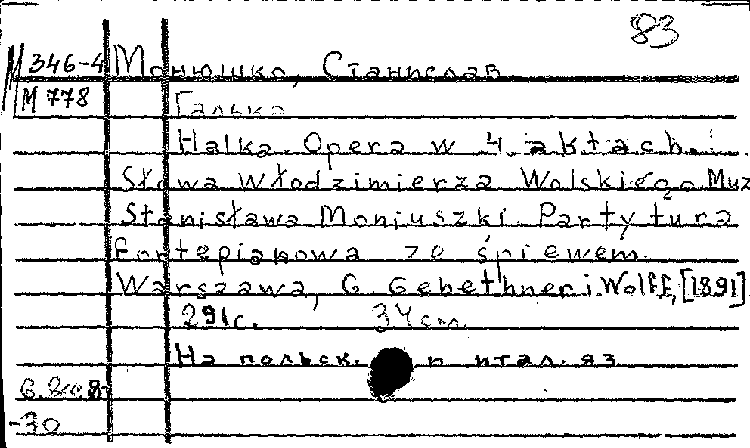 83
M 346-4 Монюшко, Станислав
M 778 Галька
Halka. Opera w 4 aktach.
Słowa Włodzimierza Wolskiego Muz
Stanisława Moniuszki Partytura
fortepianowa ze śpiewem
Warszawa, G. Gebethner i Wolff, [1891]
291 с. 34 cm.
На польск. и итал. яз.
-30